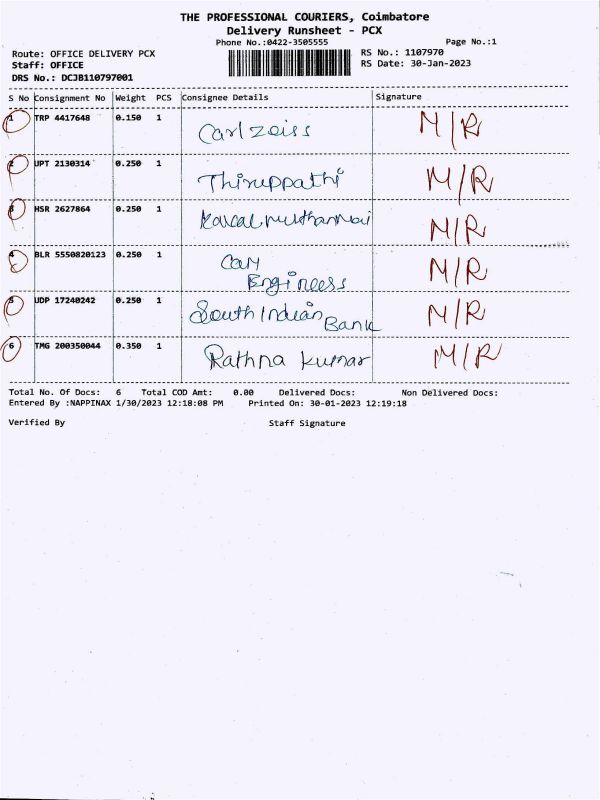 THE PROFESSIONAL COURIERS, Coimbatore
Delivery Runsheet - PCX
Phone No.:0422-3505555 Page No.:1
Route: OFFICE DELIVERY PCX RS No.: 1107970
Staff: OFFICE RS Date: 30-Jan-2023
DRS No.: DCJB110797001
S No Consignment No Weight PCS Consignee Details Signature
1 TRP 4417648 0.150 1 Carl zeiss M/R
2 UPT 2130314 0.250 1 Thiruppathi M/R
3 HSR 2627864 0.250 1 M/R
4 BLR 5550820123 0.250 1 M/R
5 UDP 17240242 0.250 1 South Indian Bank M/R
6 TMG 200350044 0.350 1 Rathna Kumar M/R
Total No. Of Docs: 6 Total COD Amt: 0.00 Delivered Docs: Non Delivered Docs:
Entered By :NAPPINAX 1/30/2023 12:18:08 PM Printed On: 30-01-2023 12:19:18
Verified By Staff Signature